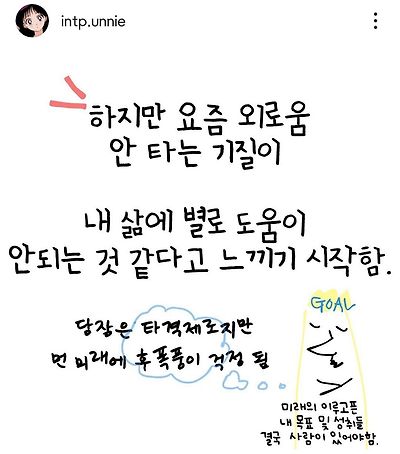 intp.unnie
하지만 요즘 외로움
안 타는 기질이
내 삶에 별로 도움이
안되는 것 같다고 느끼기 시작함.
당장은 타격제로지만
먼 미래에 후폭풍이 걱정 됨
GOAL
미래의 이루고픈
내 목표 및 성취들
결국 사람이 있어야함.